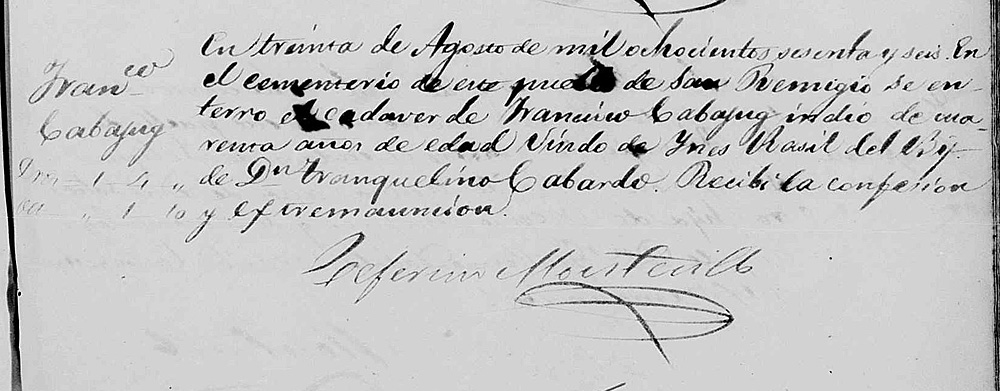 En treinta de Agosto de mil ochocientos sesenta y seis. En
Fran.co
el cementerio de este pueblo de San Remigio se en-
terro el cadaver de Francisco Cabajug indio de cua-
Cabajug
renta años de edad Viudo de Ynes Rasil del B.y
de Dn Tranquelino Cabardo. Recibi la confesion
y extremauncion.
Ceferino